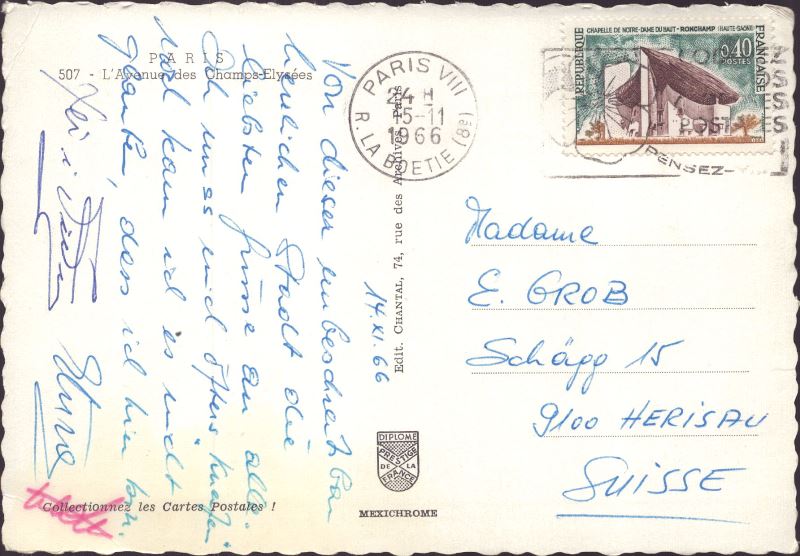 PARIS
507 - L'Avenue des Champs-Elysées
14.XI.66
Von dieser unbeschreibbar
herrlichen Stadt die
liebsten Grüsse an alle.
Ich muss mich öfters kneifen
noch kann ich es nicht
glauben, dass ich hier bin.
Collectionnez les Cartes Postales !
Edit. CHANTAL, 74, rue des Archives, Paris
DIPLOME
PRESTIGE
DE LA
FRANCE
MEXICHROME
PARIS VIII
24 H
15-11
1966
R. LA BOETIE (8e)
CHAPELLE DE NOTRE-DAME DU HAUT - RONCHAMP (HAUTE-SAÔNE)
REPUBLIQUE
FRANÇAISE
0,40
POSTES
POST
PENSEZ-
Madame
E. GROB
Schägg 15
9100 HERISAU
SUISSE